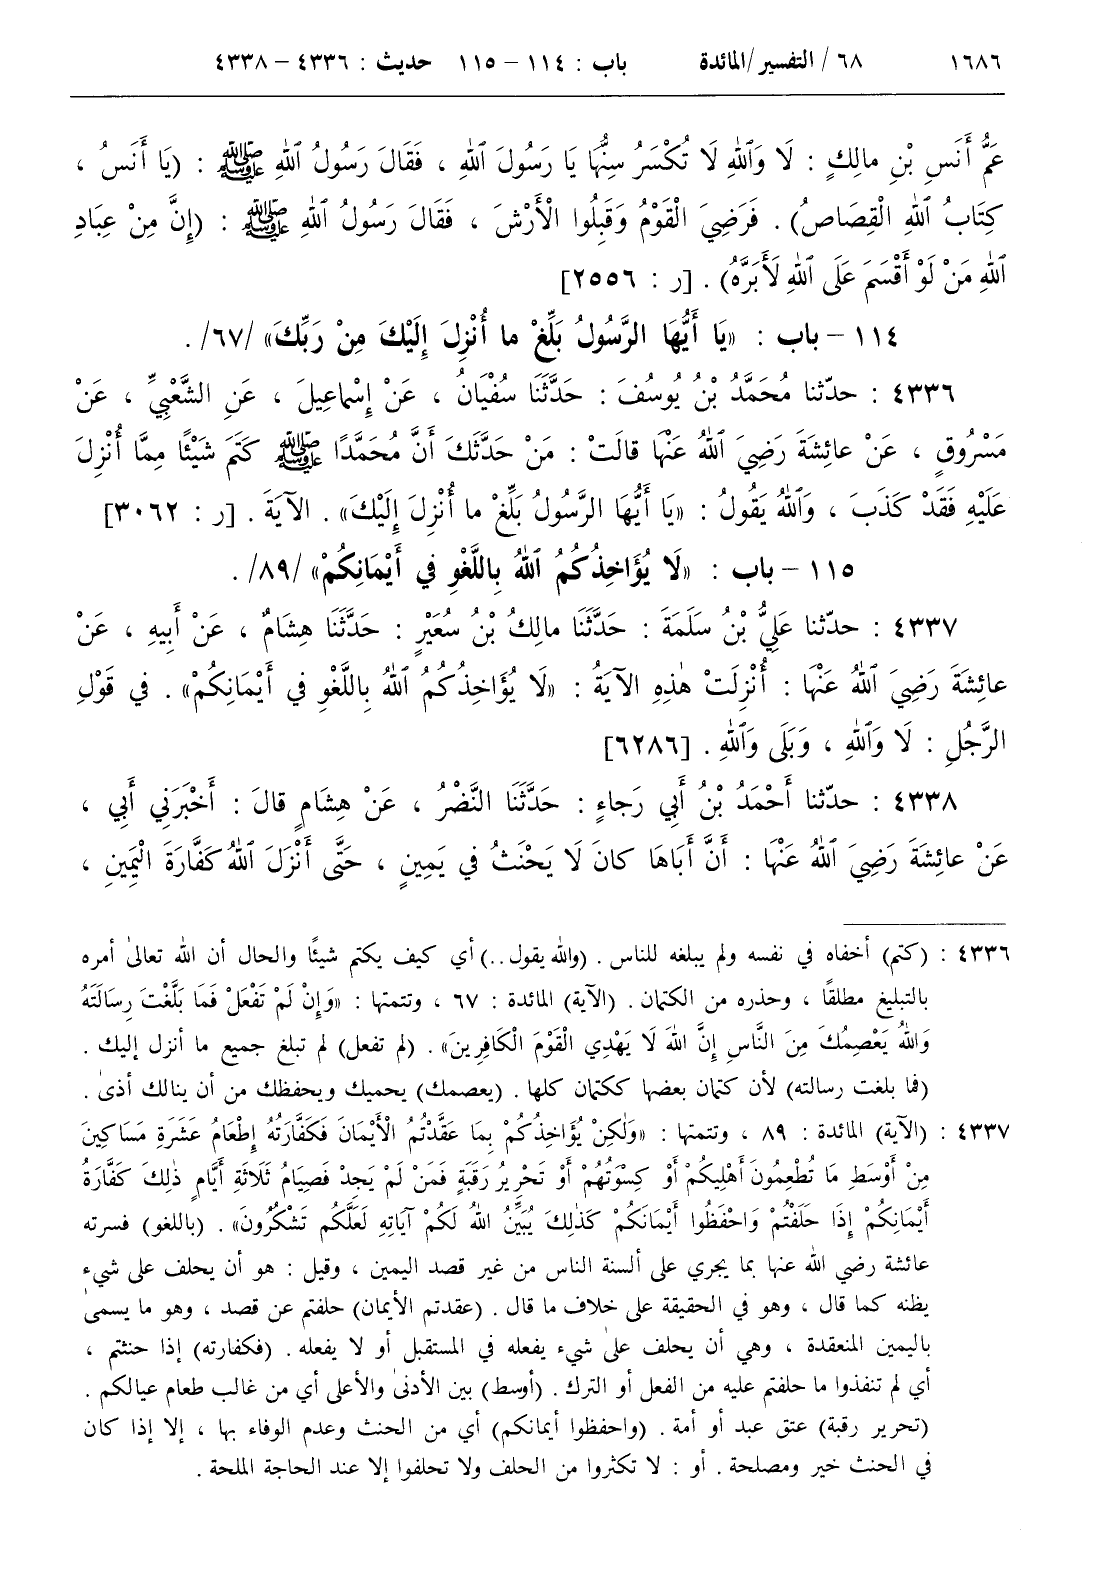 ١٦٨٦ ٦٨ / التفسير/المائدة باب : ١١٤ – ١١٥ حديث : ٤٣٣٦ – ٤٣٣٨
عَمُّ أَنَسِ بْنِ مالِكٍ : لَا وَٱللهِ لَا تُكْسَرُ سِنُّهَا يَا رَسُولَ ٱللهِ ، فَقَالَ رَسُولُ ٱللهِ ﷺ : (يَا أَنَسُ ،
كِتَابُ ٱللهِ الْقِصَاصُ) . فَرَضِيَ الْقَوْمُ وَقَبِلُوا الْأَرْشَ ، فَقَالَ رَسُولُ ٱللهِ ﷺ : (إِنَّ مِنْ عِبَادِ
ٱللهِ مَنْ لَوْ أَقْسَمَ عَلَى ٱللهِ لَأَبَرَّهُ) . [ر : ٢٥٥٦]
١١٤ – باب : «يَا أَيُّهَا الرَّسُولُ بَلِّغْ ما أُنْزِلَ إِلَيْكَ مِنْ رَبِّكَ» /٦٧/ .
٤٣٣٦ : حدّثنا مُحَمَّدُ بْنُ يُوسُفَ : حَدَّثَنَا سُفْيَانُ ، عَنْ إِسْماعِيلَ ، عَنِ الشَّعْبِيِّ ، عَنْ
مَسْرُوقٍ ، عَنْ عائِشَةَ رَضِيَ ٱللهُ عَنْهَا قالَتْ : مَنْ حَدَّثَكَ أَنَّ مُحَمَّدًا ﷺ كَتَمَ شَيْئًا مِمَّا أُنْزِلَ
عَلَيْهِ فَقَدْ كَذَبَ ، وَٱللهُ يَقُولُ : «يَا أَيُّهَا الرَّسُولُ بَلِّغْ ما أُنْزِلَ إِلَيْكَ» . الآيَةَ . [ر : ٣٠٦٢]
١١٥ – باب : «لَا يُؤَاخِذُكُمُ ٱللهُ بِاللَّغْوِ في أَيْمَانِكُمْ» /٨٩/ .
٤٣٣٧ : حدّثنا عَلِيُّ بْنُ سَلَمَةَ : حَدَّثَنَا مالِكُ بْنُ سُعَيْرٍ : حَدَّثَنَا هِشَامٌ ، عَنْ أَبِيهِ ، عَنْ
عائِشَةَ رَضِيَ ٱللهُ عَنْهَا : أُنْزِلَتْ هٰذِهِ الآيَةُ : «لَا يُؤَاخِذُكُمُ ٱللهُ بِاللَّغْوِ في أَيْمَانِكُمْ» . في قَوْلِ
الرَّجُلِ : لَا وَٱللهِ ، وَبَلَى وَٱللهِ . [٦٢٨٦]
٤٣٣٨ : حدّثنا أَحْمَدُ بْنُ أَبِي رَجاءٍ : حَدَّثَنَا النَّضْرُ ، عَنْ هِشَامٍ قالَ : أَخْبَرَنِي أَبِي ،
عَنْ عائِشَةَ رَضِيَ ٱللهُ عَنْهَا : أَنَّ أَبَاهَا كانَ لَا يَحْنَثُ في يَمِينٍ ، حَتَّى أَنْزَلَ ٱللهُ كَفَّارَةَ الْيَمِينِ ،
٤٣٣٦ : (كتم) أخفاه في نفسه ولم يبلغه للناس . (والله يقول ..) أي كيف يكتم شيئًا والحال أن الله تعالىٰ أمره
بالتبليغ مطلقًا ، وحذره من الكتمان . (الآية) المائدة : ٦٧ ، وتتمتها : «وَإِنْ لَمْ تَفْعَلْ فَمَا بَلَّغْتَ رِسَالَتَهُ
وَاللهُ يَعْصِمُكَ مِنَ النَّاسِ إِنَّ اللهَ لَا يَهْدِي الْقَوْمَ الْكَافِرِينَ» . (لم تفعل) لم تبلغ جميع ما أنزل إليك .
(فما بلغت رسالته) لأن كتمان بعضها ككتمان كلها . (يعصمك) يحميك ويحفظك من أن ينالك أذىٰ .
٤٣٣٧ : (الآية) المائدة : ٨٩ ، وتتمتها : «وَلٰكِنْ يُؤَاخِذُكُمْ بِمَا عَقَّدْتُمُ الْأَيْمَانَ فَكَفَّارَتُهُ إِطْعَامُ عَشَرَةِ مَسَاكِينَ
مِنْ أَوْسَطِ مَا تُطْعِمُونَ أَهْلِيكُمْ أَوْ كِسْوَتُهُمْ أَوْ تَحْرِيرُ رَقَبَةٍ فَمَنْ لَمْ يَجِدْ فَصِيَامُ ثَلَاثَةِ أَيَّامٍ ذٰلِكَ كَفَّارَةُ
أَيْمَانِكُمْ إِذَا حَلَفْتُمْ وَاحْفَظُوا أَيْمَانَكُمْ كَذٰلِكَ يُبَيِّنُ اللهُ لَكُمْ آيَاتِهِ لَعَلَّكُمْ تَشْكُرُونَ» . (باللغو) فسرته
عائشة رضي الله عنها بما يجري على ألسنة الناس من غير قصد اليمين ، وقيل : هو أن يحلف على شيء
يظنه كما قال ، وهو في الحقيقة على خلاف ما قال . (عقدتم الأيمان) حلفتم عن قصد ، وهو ما يسمىٰ
باليمين المنعقدة ، وهي أن يحلف علىٰ شيء يفعله في المستقبل أو لا يفعله . (فكفارته) إذا حنثتم ،
أي لم تنفذوا ما حلفتم عليه من الفعل أو الترك . (أوسط) بين الأدنىٰ والأعلى أي من غالب طعام عيالكم .
(تحرير رقبة) عتق عبد أو أمة . (واحفظوا أيمانكم) أي من الحنث وعدم الوفاء بها ، إلا إذا كان
في الحنث خير ومصلحة . أو : لا تكثروا من الحلف ولا تحلفوا إلا عند الحاجة الملحة .